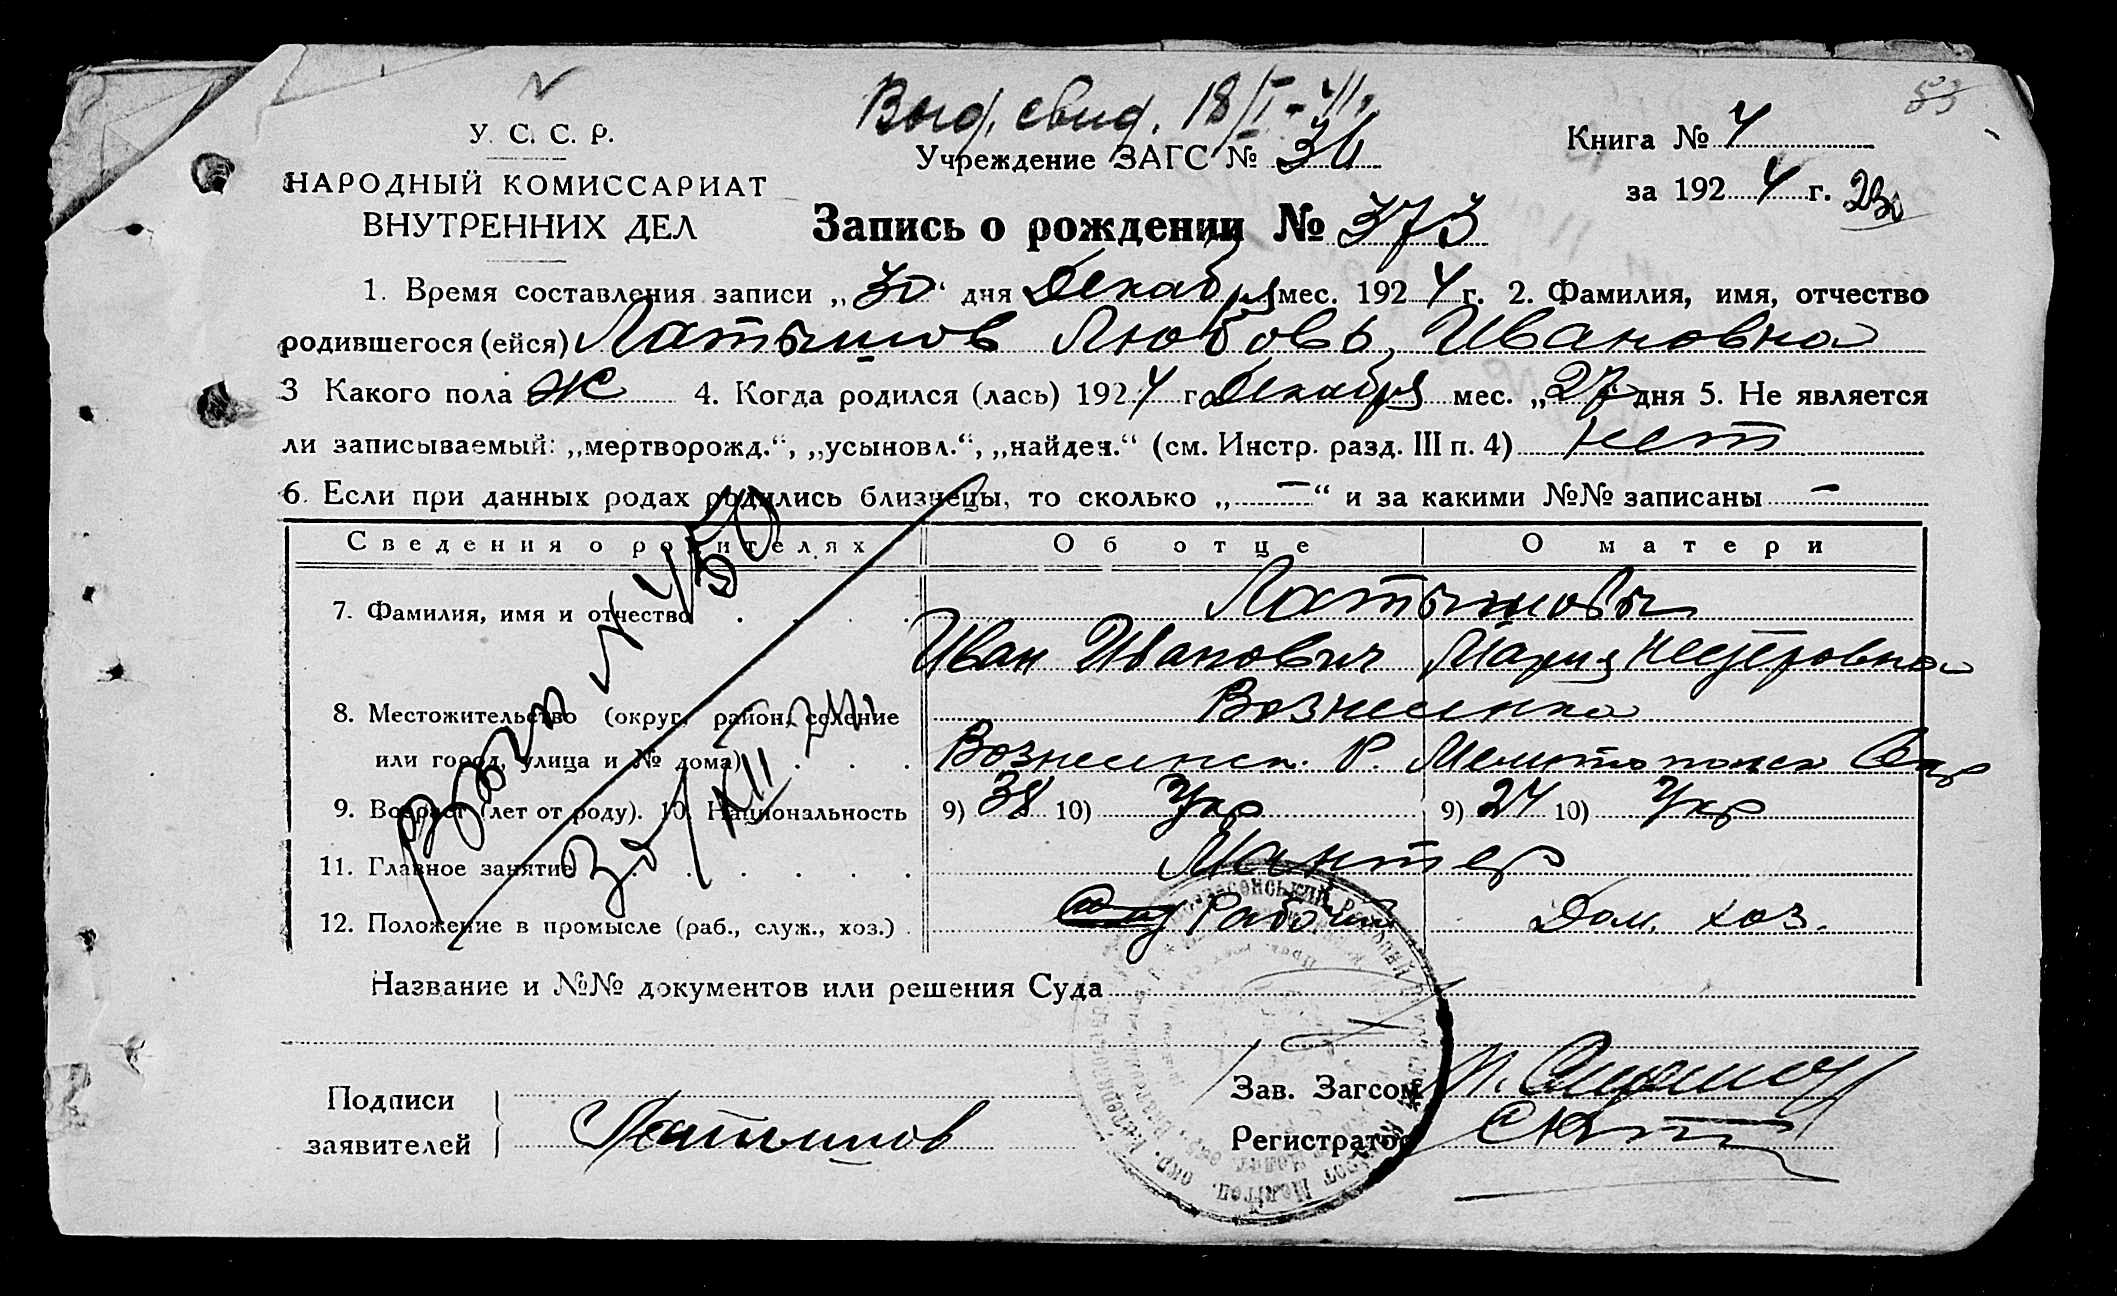 Выд. свид. 18/I-41г.
83
У. С. С. Р.
НАРОДНЫЙ КОМИССАРИАТ
ВНУТРЕННИХ ДЕЛ
Учреждение ЗАГС №
Книга № 4
за 1924 г.
Запись о рождении № 373
1. Время составления записи „30“ дня Декабря мес. 1924 г. 2. Фамилия, имя, отчество
родившегося (ейся) Латышов Любовь Ивановна
3 Какого пола Ж 4. Когда родился (лась) 1924 г. Декабря мес. „27“ дня 5. Не является
ли записываемый: „мертворожд.“, „усыновл.“, „найден.“ (см. Инстр. разд. III п. 4) нет
6. Если при данных родах родились близнецы, то сколько „—“ и за какими №№ записаны —
Сведения о родителях Об отце О матери
Латышовы
7. Фамилия, имя и отчество
Иван Иванович Мария Нестеровна
8. Местожительство (округ, район, селение Вознесенка
или город, улица и № дома) Вознесенск. Р. Мелитопольск Окр
9. Возраст (лет от роду). 10. Национальность 9) 38 10) Укр 9) 24 10) Укр
11. Главное занятие Монтер
12. Положение в промысле (раб., служ., хоз.) Рабочий Дом. хоз.
N 450
Название и №№ документов или решения Суда
Подписи
заявителей Латышов
Зав. Загсом
Регистратор